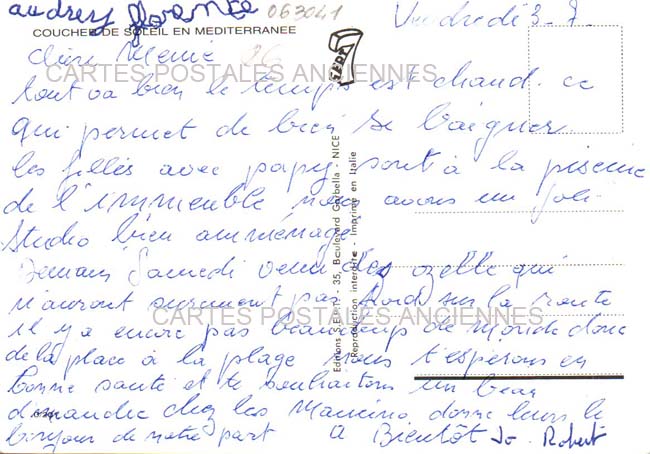 audrey florence 063041
Vendredi 3-7.
COUCHER DE SOLEIL EN MEDITERRANEE
Chère Mémie
CARTES POSTALES ANCIENNES
tout va bien le temps est chaud. ce
qui permet de bien se baigner.
les filles avec papy sont à la piscine
de l'immeuble nous avons un joli
studio bien amménagé
Demain Samedi venu des qui
n'auront surement pas froid sur la route
CARTES POSTALES ANCIENNES
il y a encore pas beaucoup de monde donc
de la place à la plage nous t'espérons en
bonne santé et te souhaitons un beau
dimanche chez les Mancino donne leurs le
bonjour de notre part à Bientôt Jo. Robert
Editions S.E.P.T. - 35, Boulevard Gorbella - NICE
Reproduction interdite - Imprimé en Italie
SEPT